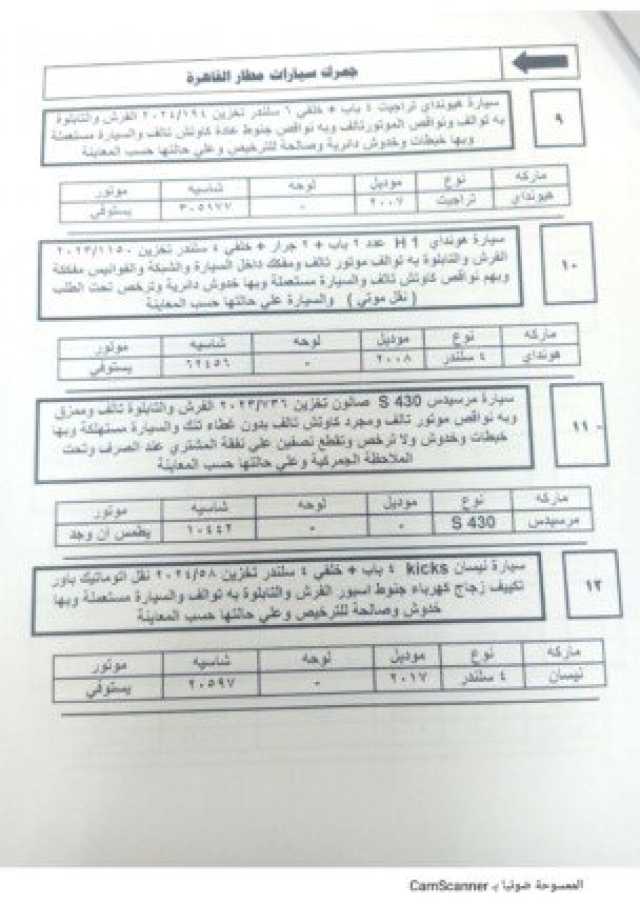 جمرك سيارات مطار القاهرة
٩
سيارة هيونداي تراجيت ٤ باب + خلفي ٦ سلندر تخزين ٢٠٢٤/١٩٤ الفرش والتابلوة
به توالف ونواقص الموتور تالف وبه نواقص جنوط عادة كاوتش تالف والسيارة مستعملة
وبها خبطات وخدوش دائرية وصالحة للترخيص وعلي حالتها حسب المعاينة
ماركه نوع موديل لوحه شاسيه موتور
هيونداي تراجيت ٢٠٠٧ - ٣٠٥٩٧٧ يستوفي
١٠
سيارة هونداي H 1 عدد ٢ باب + ٢ جرار + خلفي ٤ سلندر تخزين ٢٠٢٣/١١٥٠
الفرش والتابلوة به توالف موتور تالف ومفكك داخل السيارة والشبكة والفوانيس مفككة
وبهم نواقص كاوتش تالف والسيارة مستعملة وبها خدوش دائرية وترخص تحت الطلب
( نقل موتي ) والسيارة علي حالتها حسب المعاينة
ماركه نوع موديل لوحه شاسيه موتور
هونداي ٤ سلندر ٢٠٠٨ - ٦٢٤٥٦ يستوفي
١١ -
سيارة مرسيدس S 430 صالون تخزين ٢٠٢٣/٧٣٦ الفرش والتابلوة تالف وممزق
وبه نواقص موتور تالف ومجرد كاوتش تالف بدون غطاء تنك والسيارة مستهلكة وبها
خبطات وخدوش ولا ترخص وتقطع نصفين علي نفقة المشتري عند الصرف وتحت
الملاحظة الجمركية وعلي حالتها حسب المعاينة
ماركه نوع موديل لوحه شاسيه موتور
مرسيدس S 430 - - ١٠٤٤٢ يطمس ان وجد
١٢
سيارة نيسان kicks ٤ باب + خلفي ٤ سلندر تخزين ٢٠٢٤/٥٨ نقل اتوماتيك باور
تكييف زجاج كهرباء جنوط اسبور الفرش والتابلوة به توالف والسيارة مستعملة وبها
خدوش وصالحة للترخيص وعلي حالتها حسب المعاينة
ماركه نوع موديل لوحه شاسيه موتور
نيسان ٤ سلندر ٢٠١٧ - ٢٠٥٩٧ يستوفي
الممسوحة ضوئيا بـ CamScanner